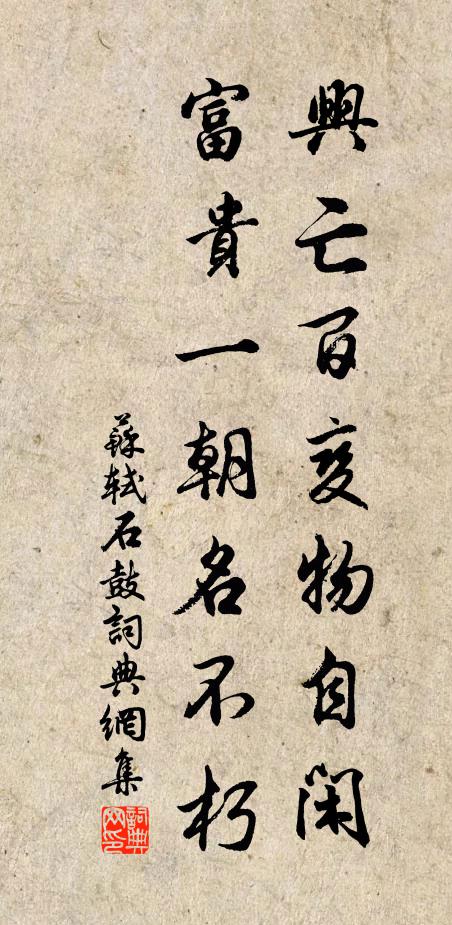 興亡百変物自閑
富貴一朝名不朽
蘇軾石鼓詞典網集
詞典網印